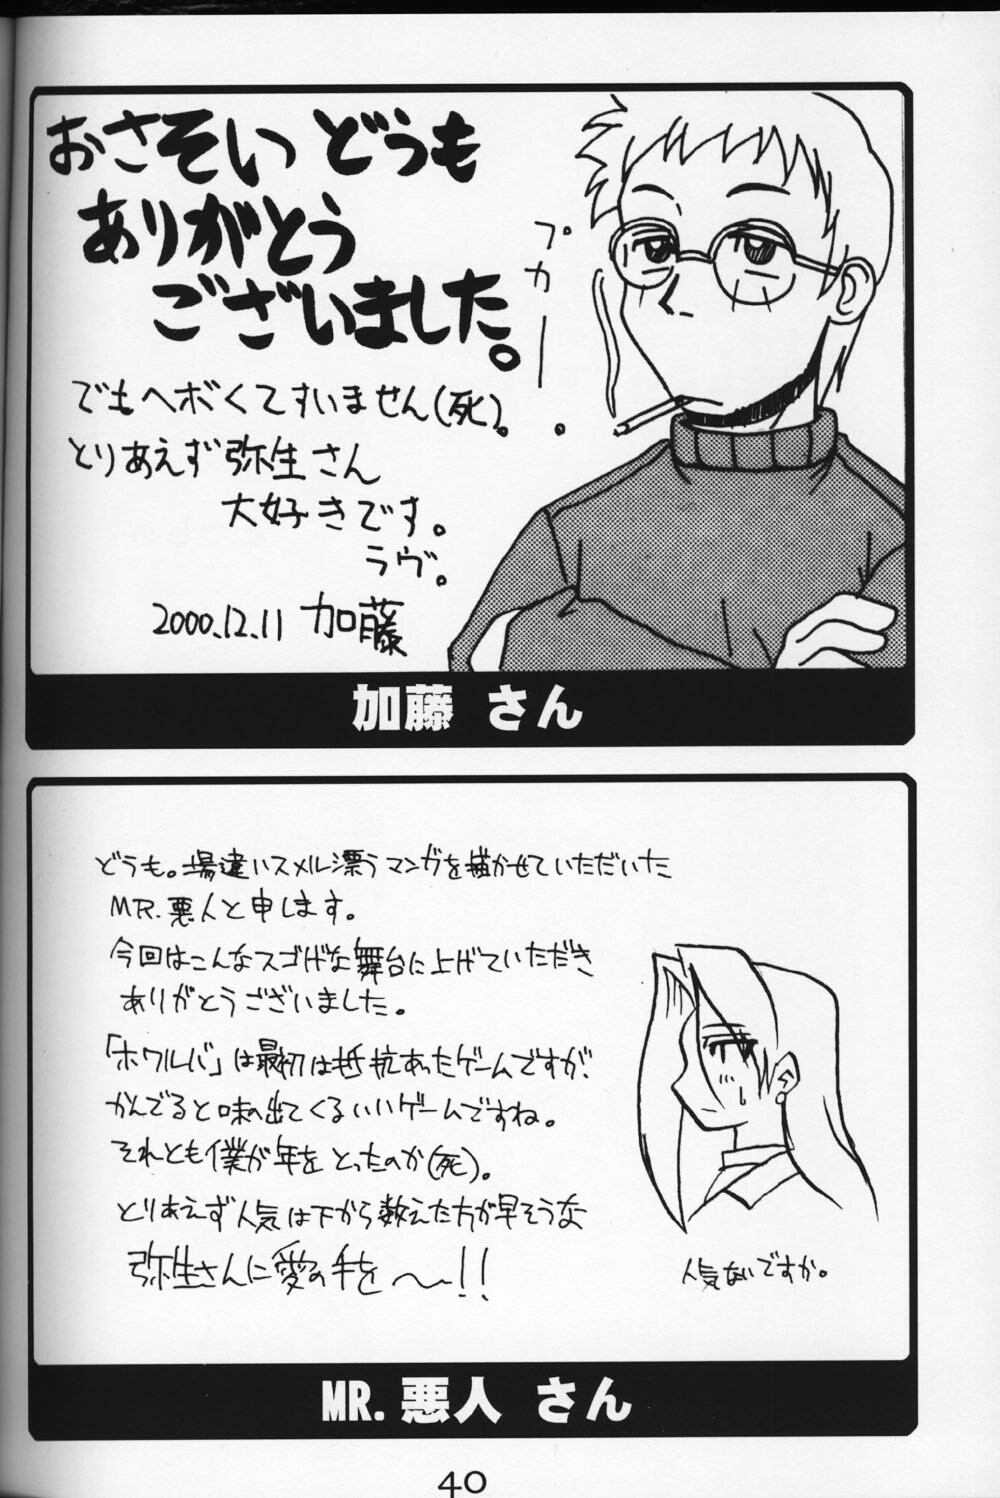 おさそい どうも
ありがとう
ございました。
プカー
でもヘボくてすいません(死)。
とりあえず弥生さん
大好きです。
ラヴ。
2000.12.11 加藤
加藤 さん
どうも。場違いスメル漂うマンガを描かせていただいた
MR.悪人と申します。
今回はこんなスゴげな舞台に上げていただき
ありがとうございました。
「ホワルバ」は最初は抵抗あったゲームですが、
かんでると味の出てくるいいゲームですね。
それとも僕が年をとったのか(死)。
とりあえず人気は下から数えた方が早そうな
弥生さんに愛の手を〜!!
人気ないですか。
MR.悪人 さん
40